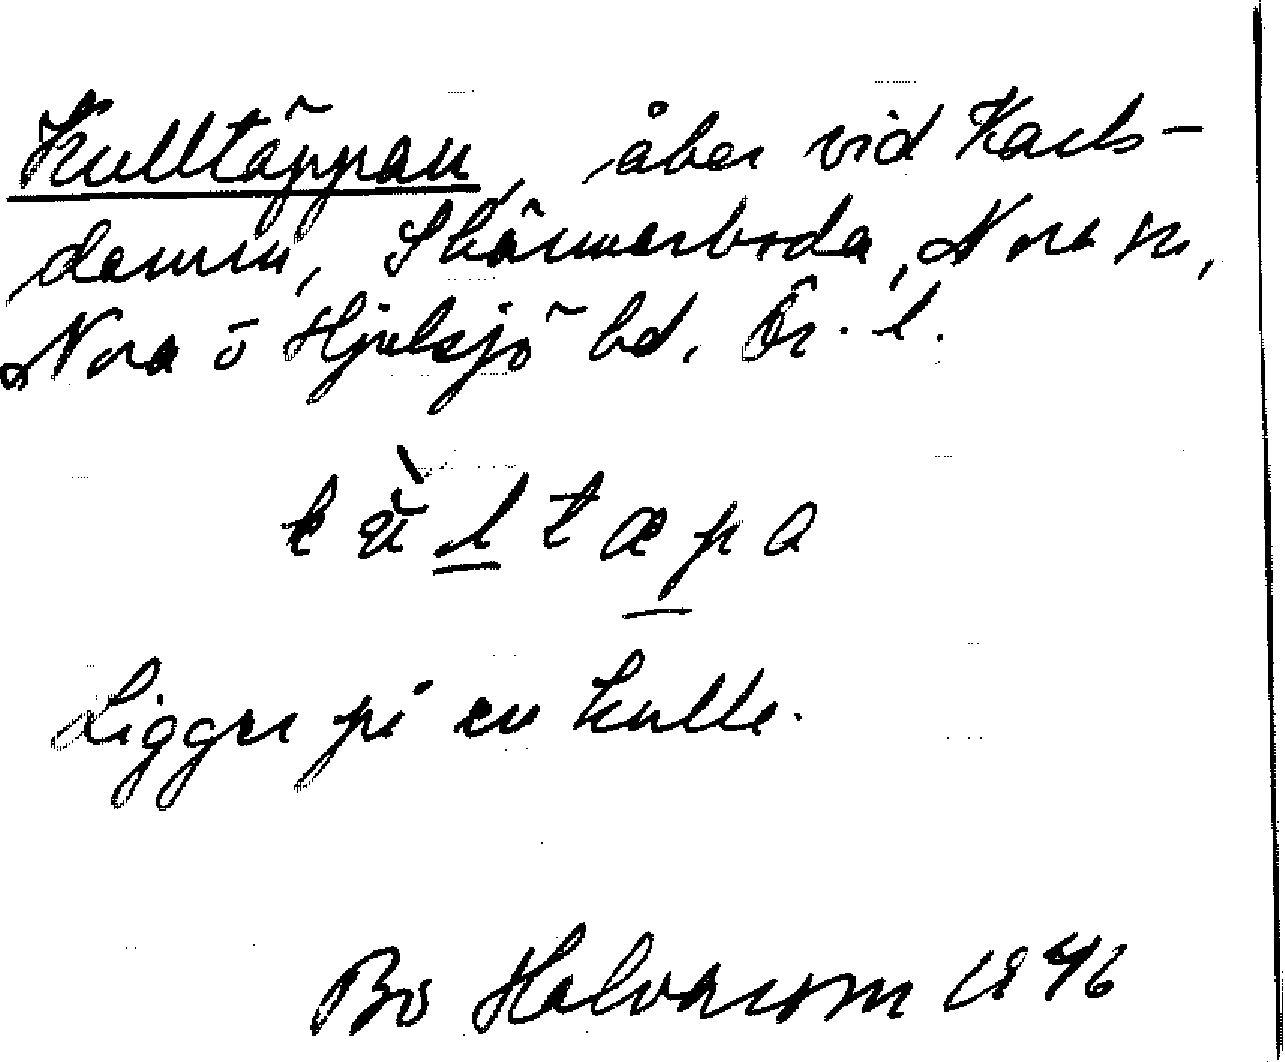 Kulltäppan, åker vid Karls-
damm, Skärmarboda, Nora sn,
Nora o Hjulsjö bd. Ör. l.
kùltæpa
Ligger på en kulle.
Bo Halvarson 1946